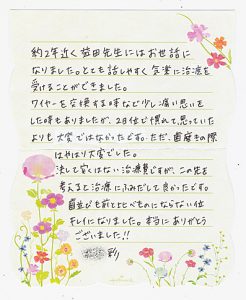 約2年近く 苫田先生にはお世話に
なりました。とても話しやすく 気楽に治療を
受けることができました。
ワイヤーを交換する時など少し痛い思いを
した時もありましたが、2日位で慣れて、思っていた
よりも大変ではなかったです。ただ、歯磨きの際
はやはり大変でした。
決して安くはない治療費ですが、この先を
考えると治療にふみだして良かったです。
歯並びも前とくらべものにならない位
キレイになりました。本当にありがとう
ございました!!
彩